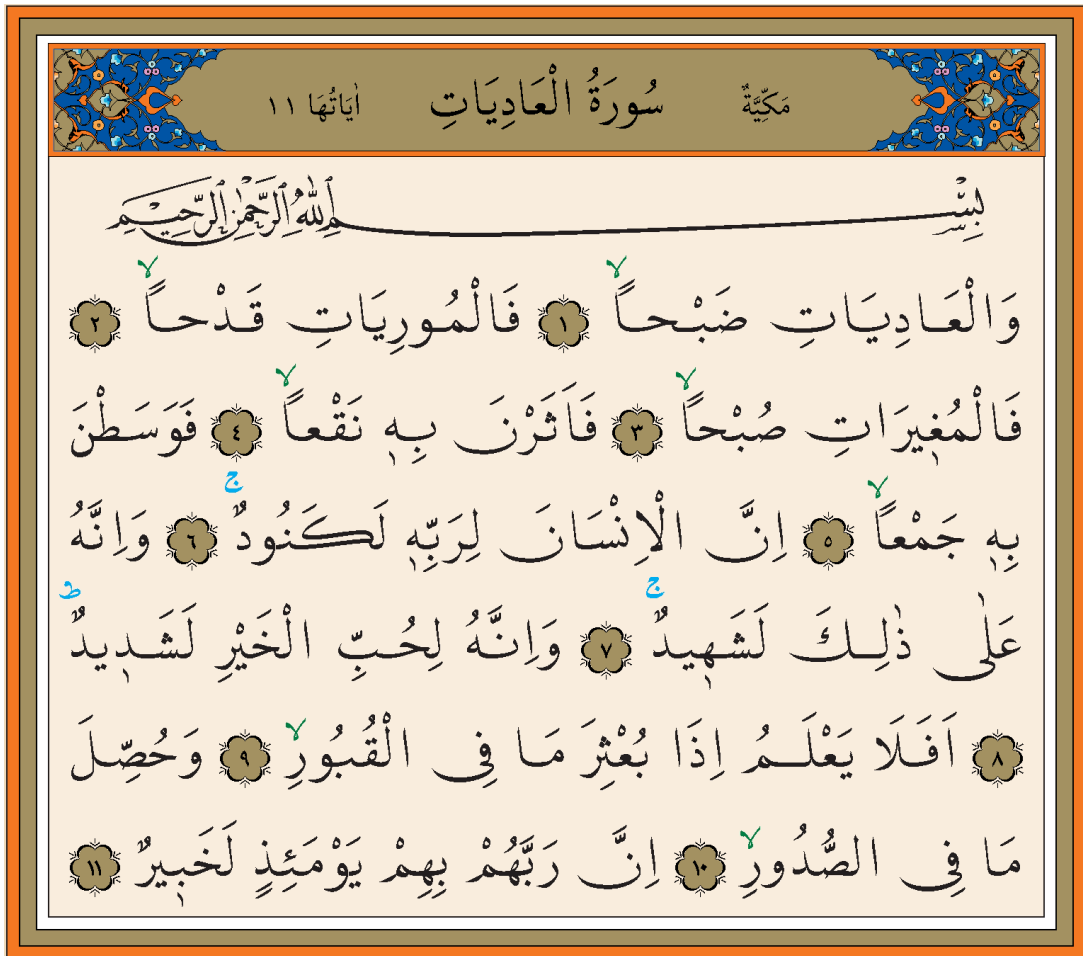 مَكِّيَّةٌ سُورَةُ الْعَادِيَاتِ اٰيَاتُهَا ١١
بِسْمِ اللّٰهِ الرَّحْمٰنِ الرَّحِيمِ
وَالْعَادِيَاتِ ضَبْحاًۙ ١ فَالْمُورِيَاتِ قَدْحاًۙ ٢
فَالْمُغ۪يرَاتِ صُبْحاًۙ ٣ فَاَثَرْنَ بِه۪ نَقْعاًۙ ٤ فَوَسَطْنَ
بِه۪ جَمْعاًۙ ٥ اِنَّ الْاِنْسَانَ لِرَبِّه۪ لَكَنُودٌۚ ٦ وَاِنَّهُ
عَلٰى ذٰلِكَ لَشَه۪يدٌۚ ٧ وَاِنَّهُ لِحُبِّ الْخَيْرِ لَشَد۪يدٌۜ
٨ اَفَلَا يَعْلَمُ اِذَا بُعْثِرَ مَا فِى الْقُبُورِۙ ٩ وَحُصِّلَ
مَا فِى الصُّدُورِۙ ١٠ اِنَّ رَبَّهُمْ بِهِمْ يَوْمَئِذٍ لَخَب۪يرٌ ١١